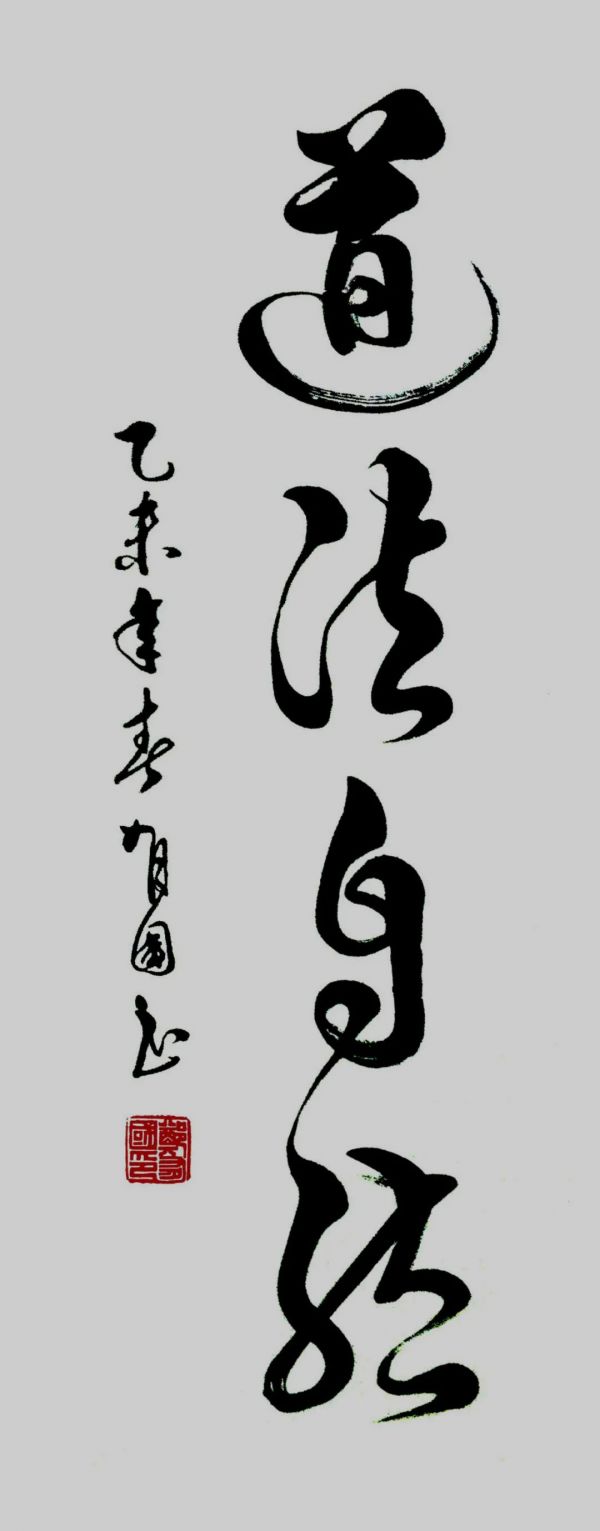 道法自然
乙未年春有國书